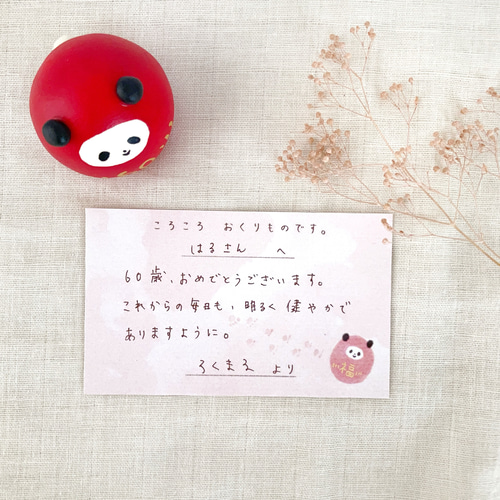 ころころ おくりものです。
はるさん へ
60歳、おめでとうございます。
これからの毎日も、明るく健やかで
ありますように。
ろくまる より
福